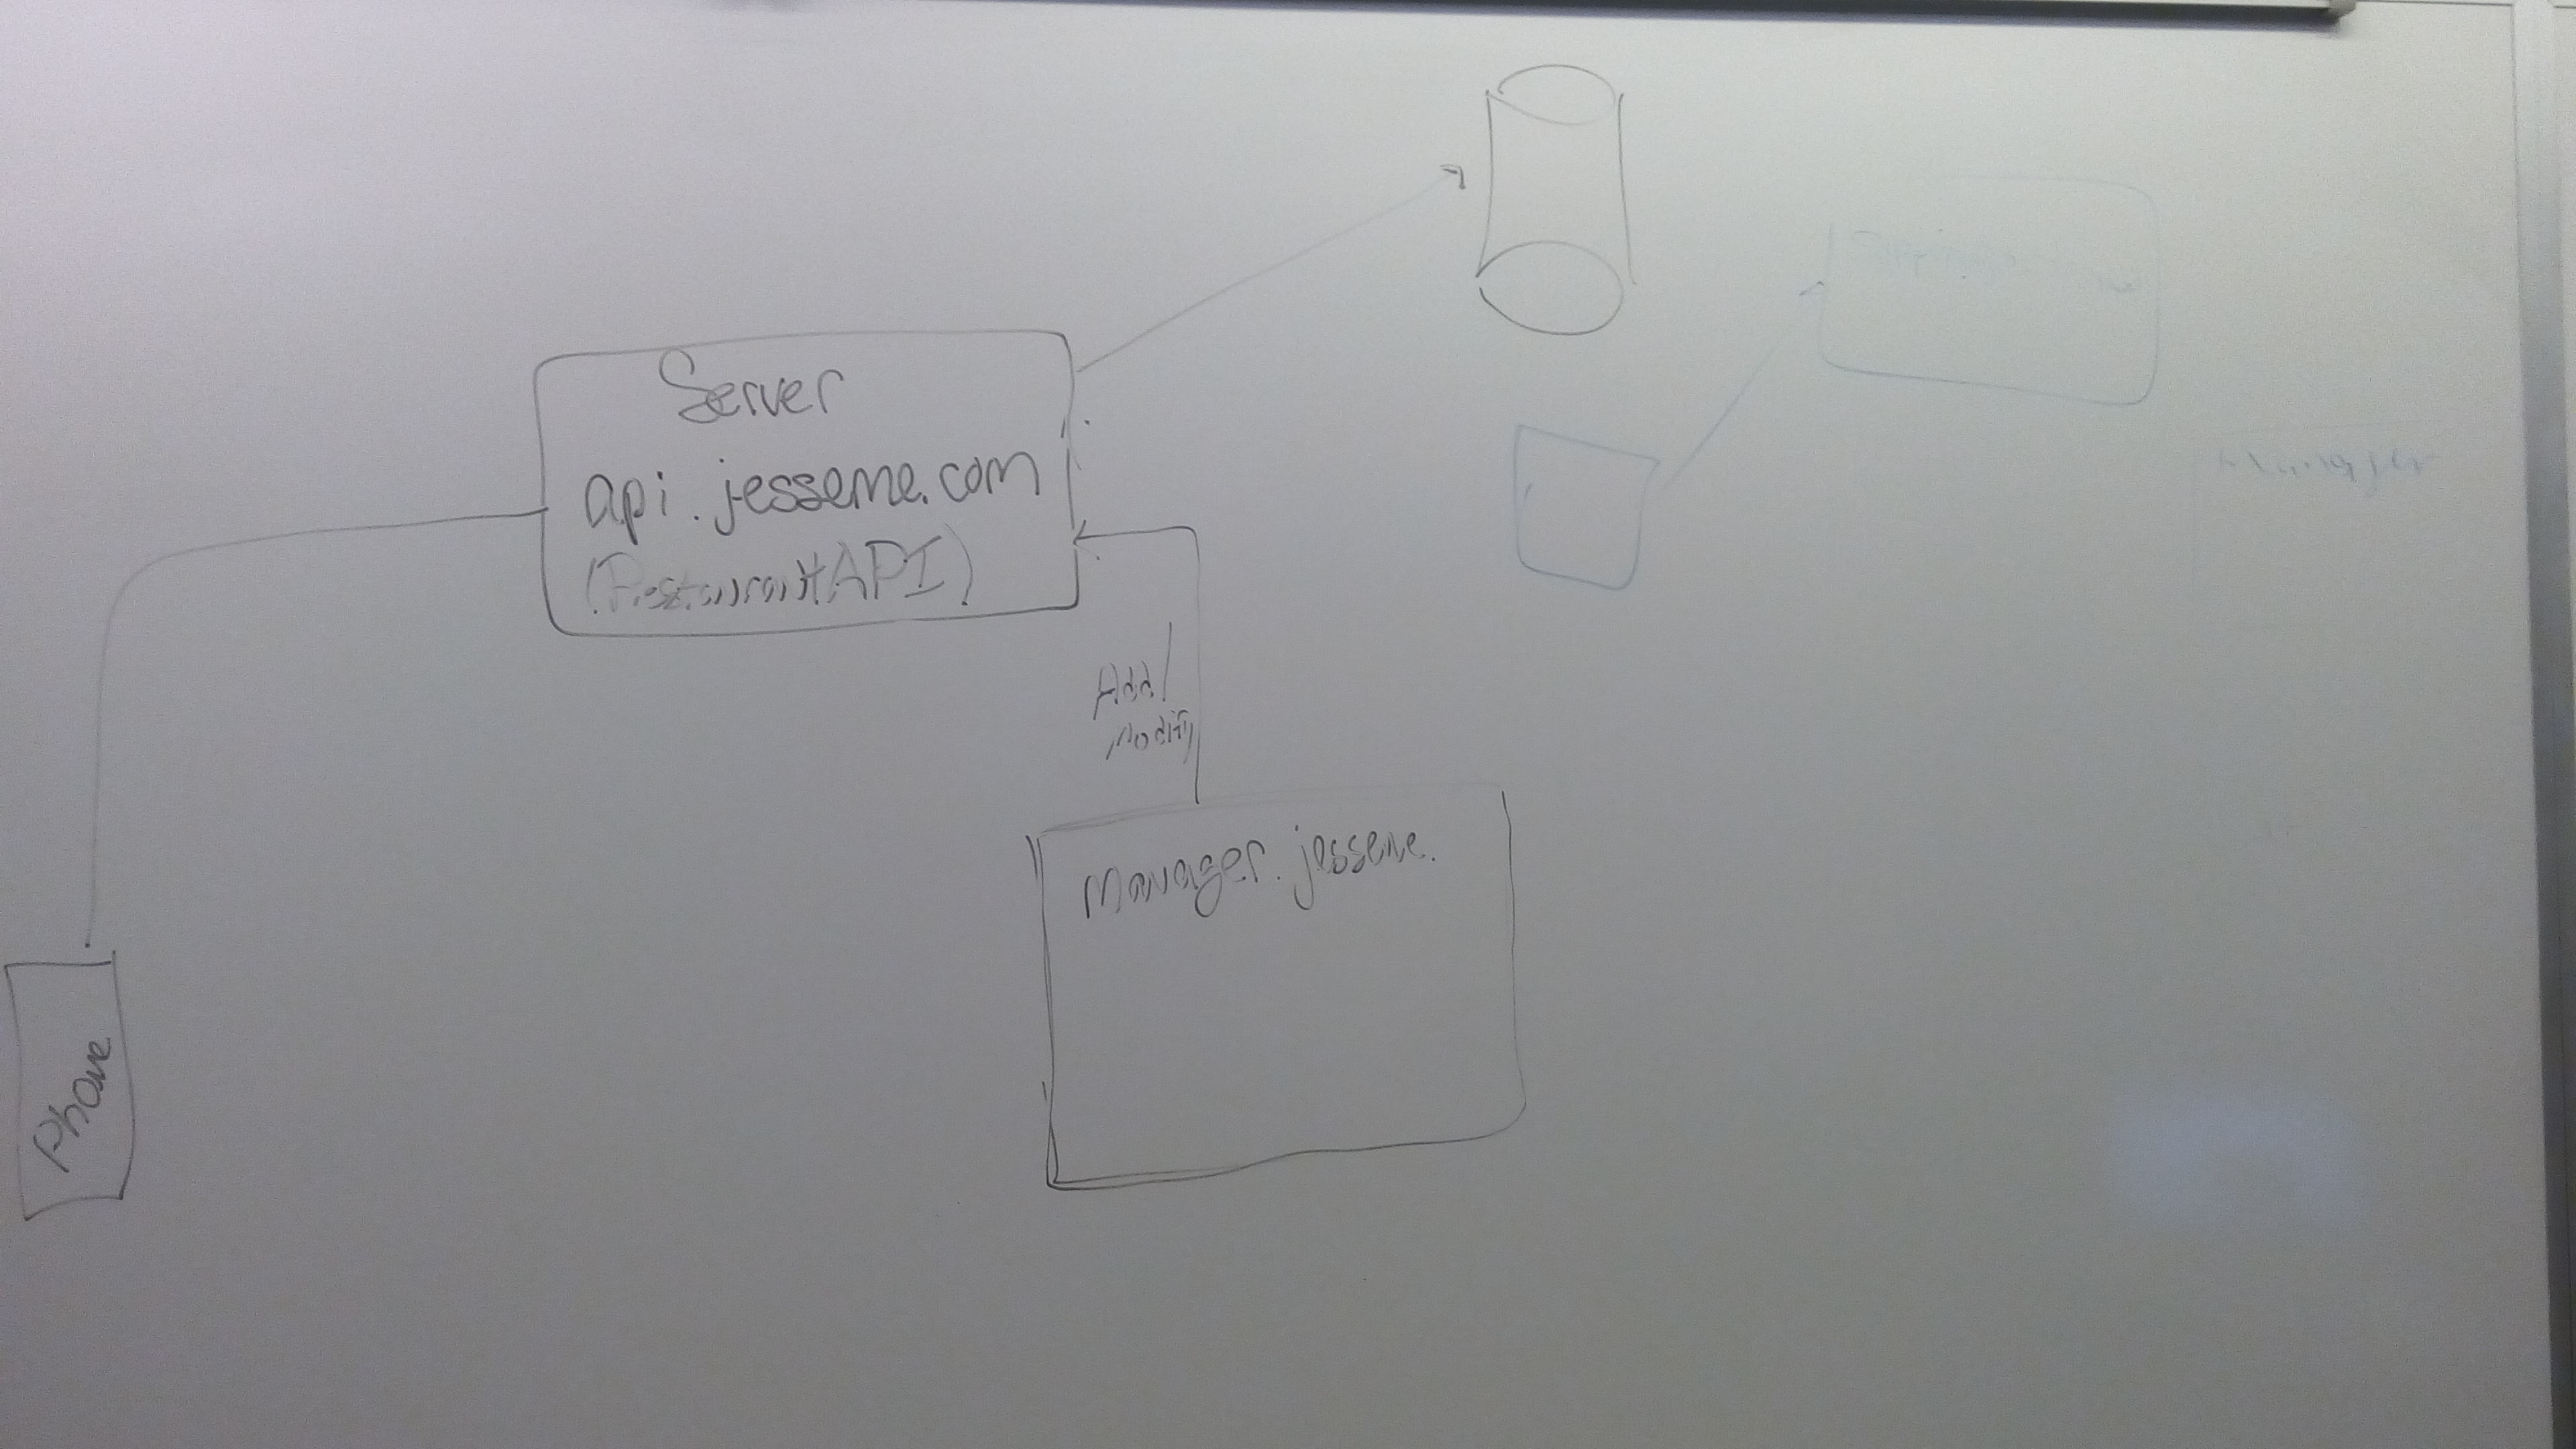 Server
api.jesseme.com
(RestaurantAPI)
Add/
Modify
Manager.jesseme.
Phone